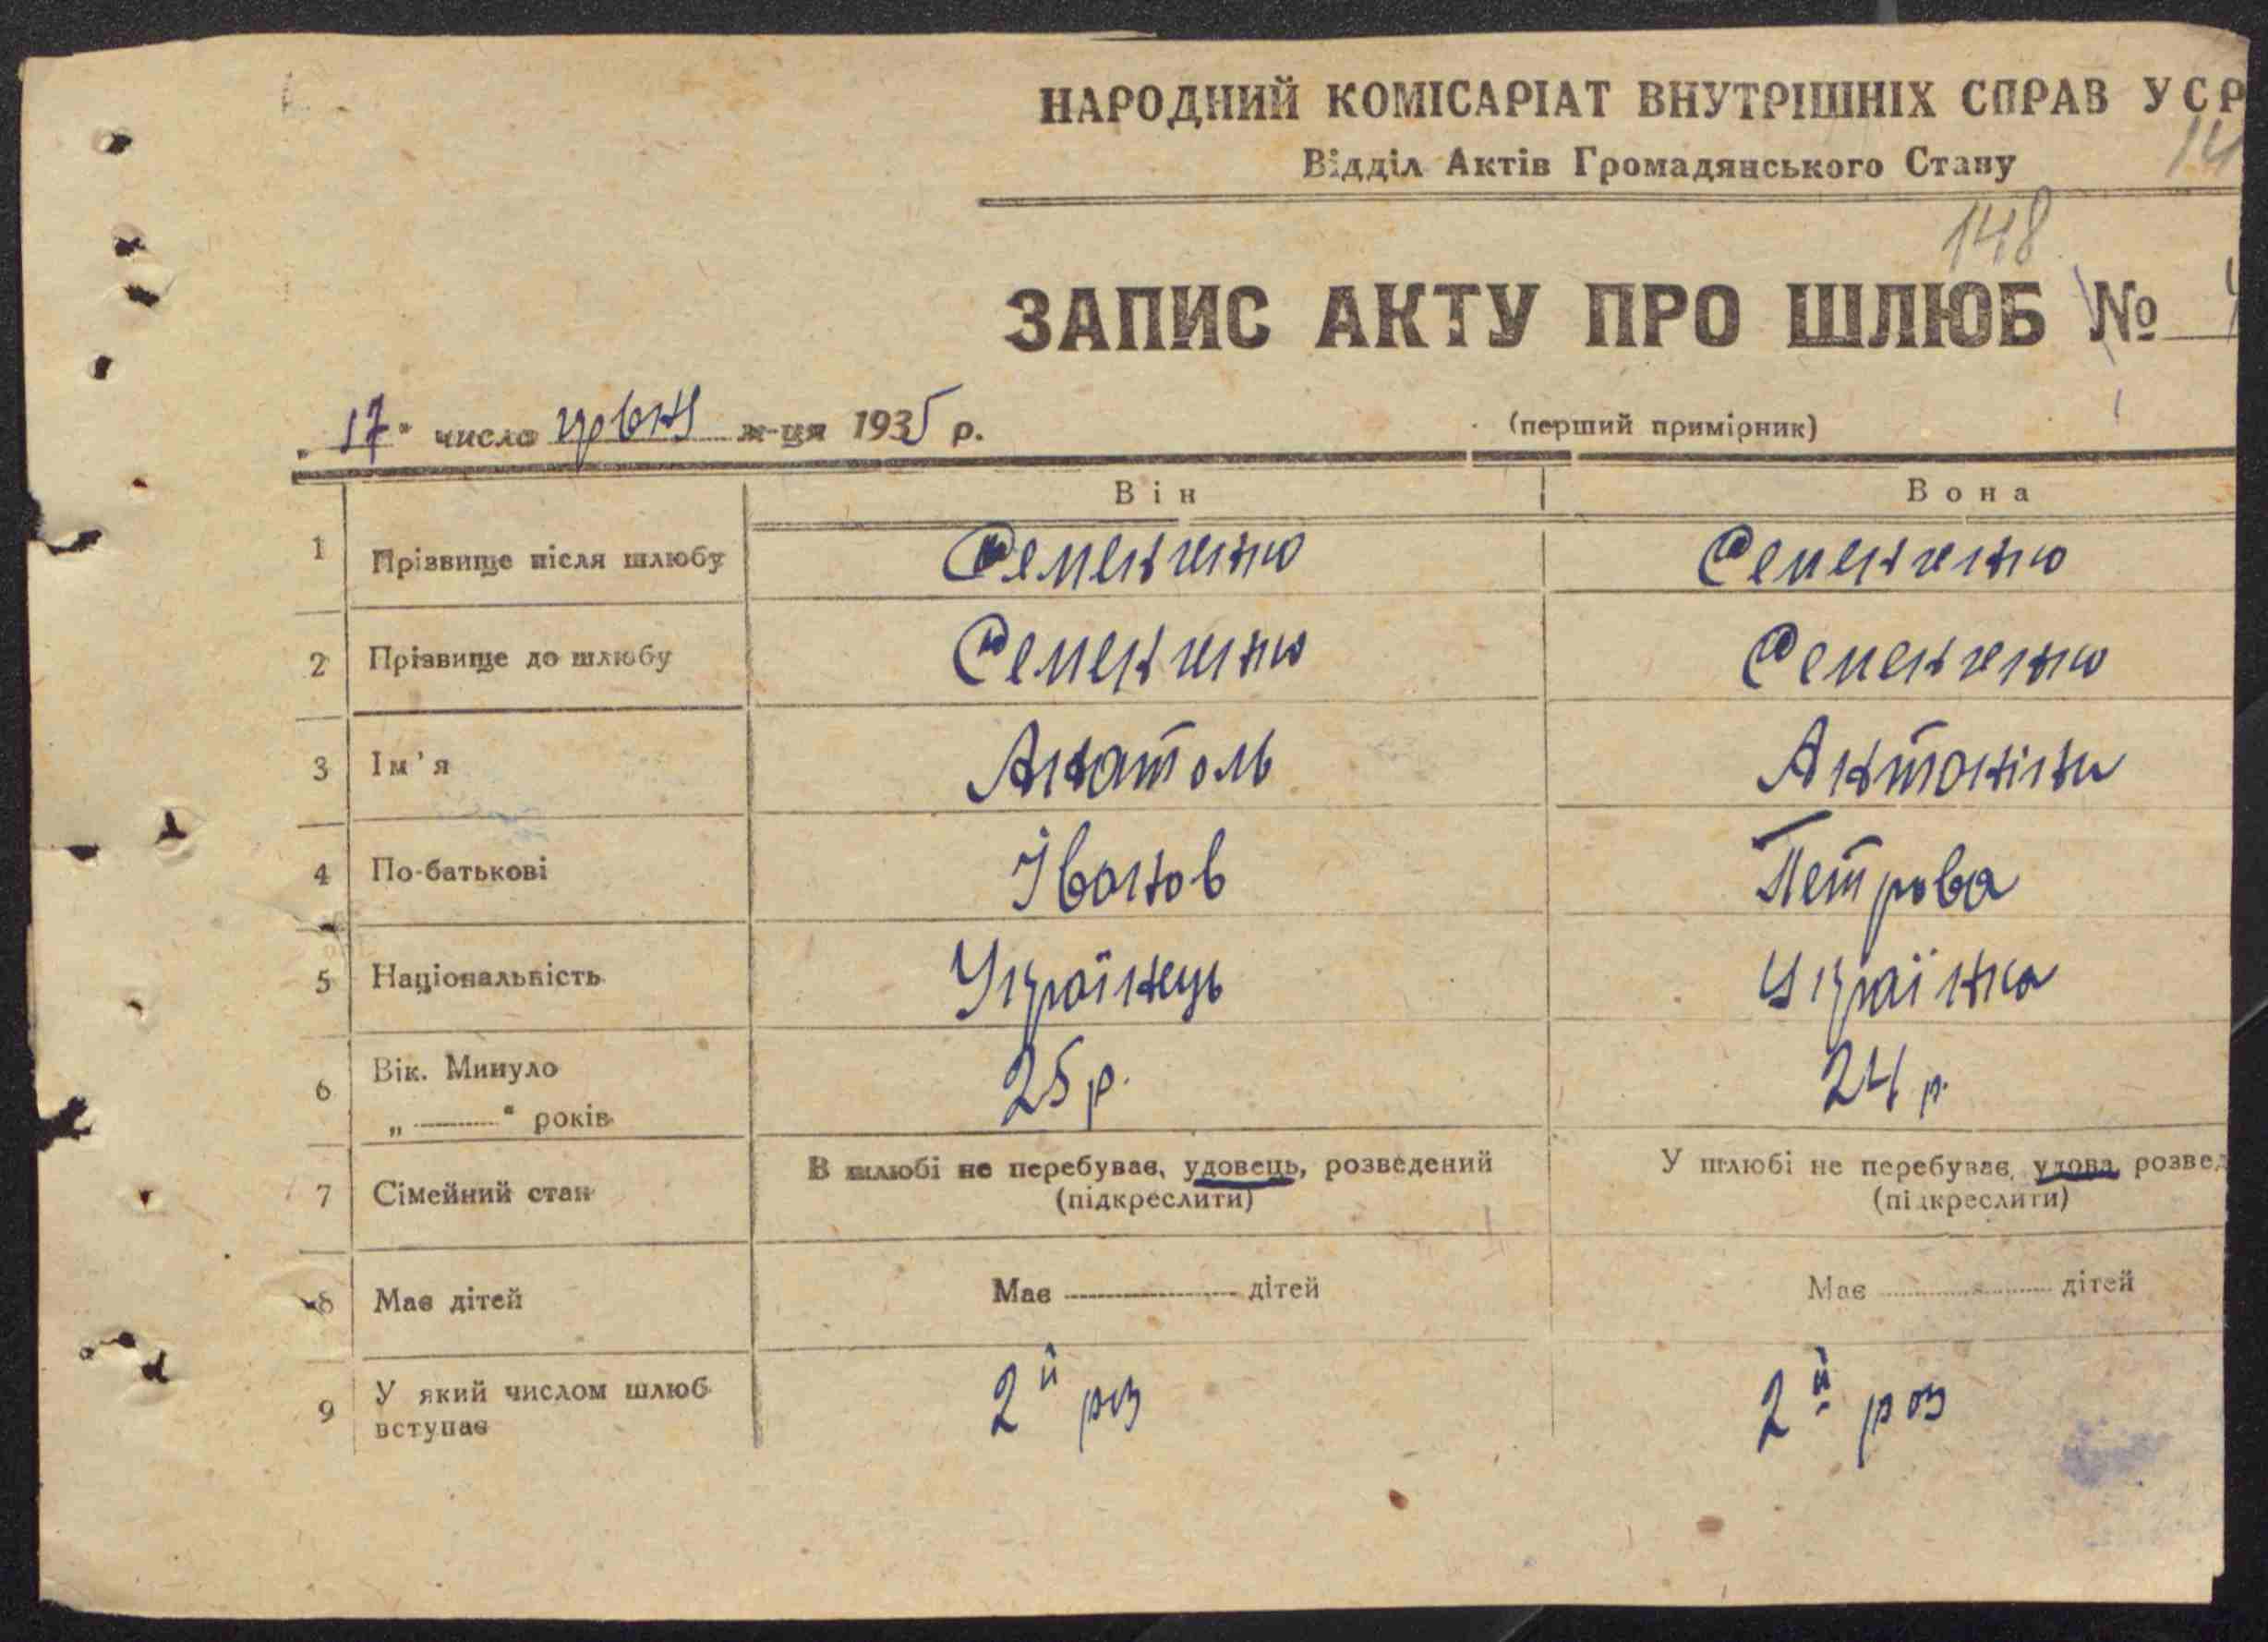 НАРОДНИЙ КОМІСАРІАТ ВНУТРІШНІХ СПРАВ УСР
14
Відділ Актів Громадянського Стану
148
ЗАПИС АКТУ ПРО ШЛЮБ №
„17“ число м-ця 1935 р.
(перший примірник)
Він Вона
1 Прізвище після шлюбу Семенченко Семенченко
2 Прізвище до шлюбу Семенченко Семенченко
3 Ім'я Анатоль Антоніна
4 По-батькові Іванов Петрова
5 Національність Українець Українка
6 Вік. Минуло „ “ років 25 р. 24 р.
7 Сімейний стан В шлюбі не перебував, удовець, розведений (підкреслити) У шлюбі не перебуває, удова, розвед (підкреслити)
8 Має дітей Має дітей Має дітей
9 У який числом шлюб вступає 2й раз 2й раз